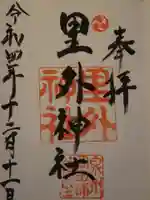 奉拝
里外神社
令和四年十二月十一日